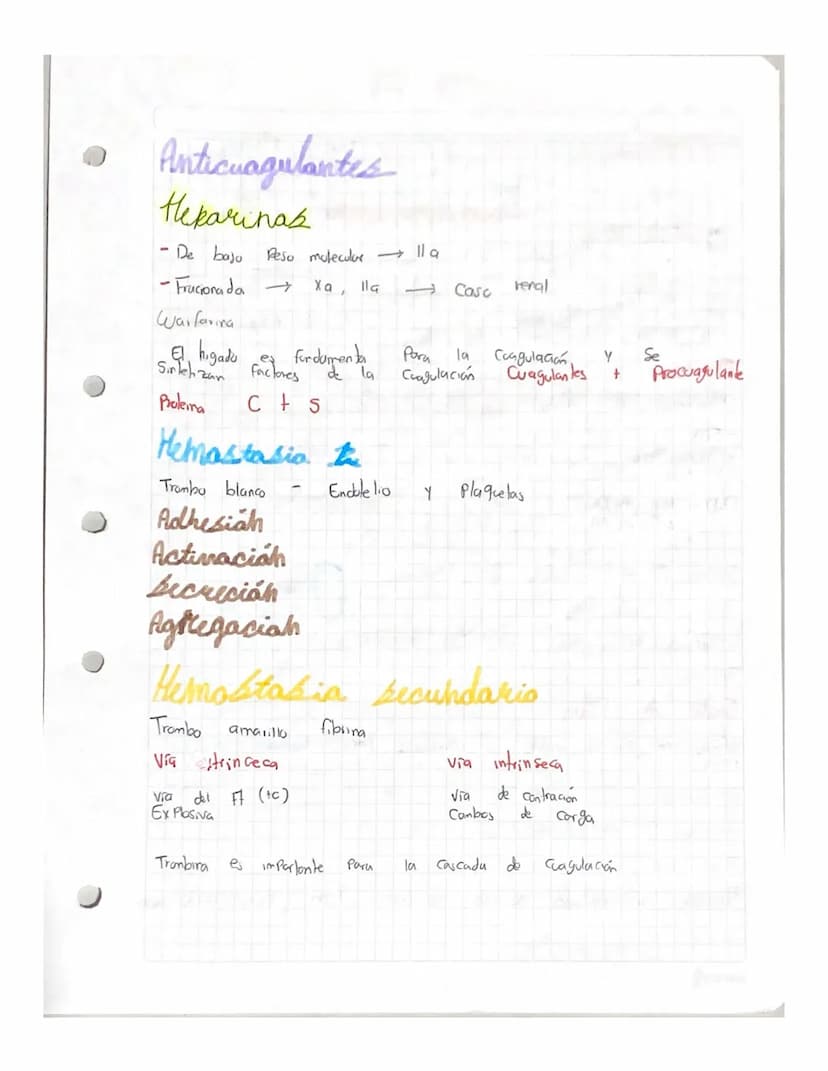 Anticuagulantes
Heparinas
- De bajo Peso molecular → IIa
- Fracionada → Xa, IIa → Caso renal
Warfarina
El higado es fundamenta Para la Coagulación y Se
Sintetizan Factores de la Coagulación Cuagulantes + Procuagulante
Proteina C + S
Hemostasia
Trombu blanco - Endotelio y Plaquetas
Adhesión
Activación
Secreción
Agregación
Hemostasia Secundario
Trombo amarillo fibrina
Vía Intrinseca
Via extrinceca
Via del (tc)
Via de contracion
Explosiva
Cambos de Carga
Trombina es importante Para la Cascada de Cuagulación